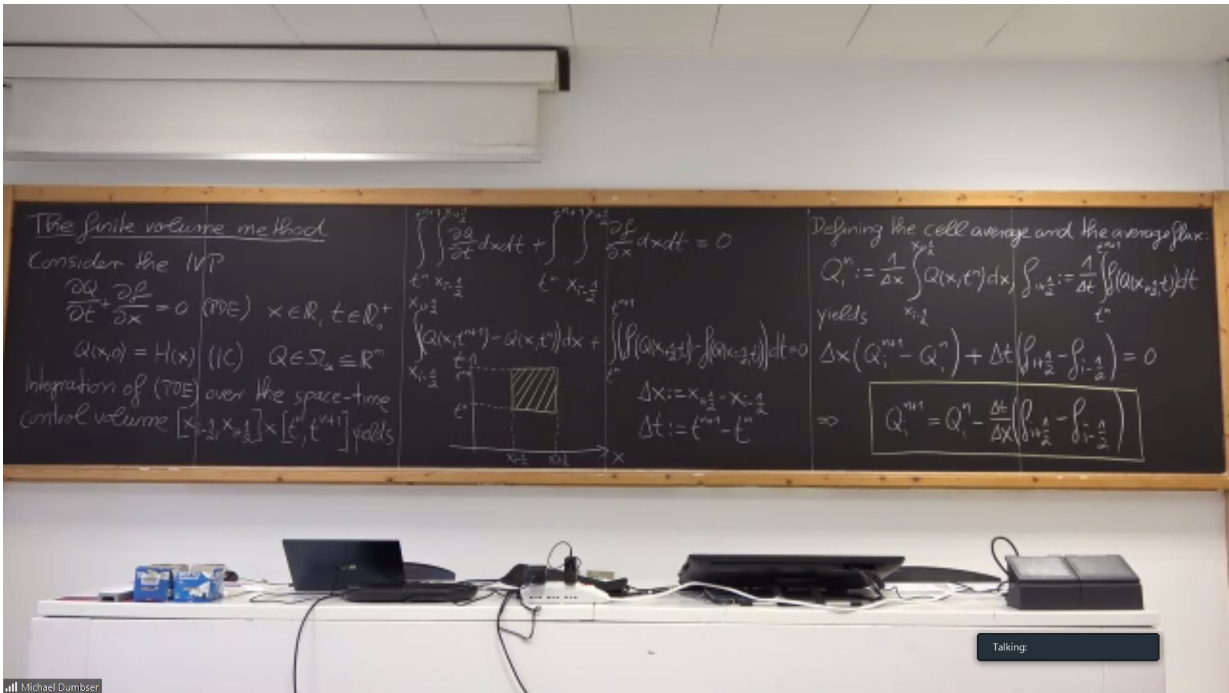 The finite volume method
Consider the IVP
∂Q/∂t + ∂f/∂x = 0 (PDE) x ∈ ℝ, t ∈ ℝ₀⁺
Q(x,0) = H(x) (IC) Q ∈ Ω_Q ⊆ ℝᵐ
Integration of (PDE) over the space-time
control volume [x_{i-1/2}, x_{i+1/2}] x [tⁿ, tⁿ⁺¹] yields
∫_{tⁿ}^{tⁿ⁺¹} ∫_{x_{i-1/2}}^{x_{i+1/2}} ∂Q/∂t dxdt + ∫_{tⁿ}^{tⁿ⁺¹} ∫_{x_{i-1/2}}^{x_{i+1/2}} ∂f/∂x dxdt = 0
∫_{x_{i-1/2}}^{x_{i+1/2}} (Q(x,tⁿ⁺¹) - Q(x,tⁿ)) dx + ∫_{tⁿ}^{tⁿ⁺¹} (f(Q(x_{i+1/2},t)) - f(Q(x_{i-1/2},t))) dt = 0
t
tⁿ⁺¹
tⁿ
x_{i-1/2} x_{i+1/2} x
Δx := x_{i+1/2} - x_{i-1/2}
Δt := tⁿ⁺¹ - tⁿ
Defining the cell average and the average flux:
Q_iⁿ := 1/Δx ∫_{x_{i-1/2}}^{x_{i+1/2}} Q(x,tⁿ) dx, f_{i+1/2} := 1/Δt ∫_{tⁿ}^{tⁿ⁺¹} f(Q(x_{i+1/2},t)) dt
yields
Δx (Q_iⁿ⁺¹ - Q_iⁿ) + Δt (f_{i+1/2} - f_{i-1/2}) = 0
⇒ Q_iⁿ⁺¹ = Q_iⁿ - Δt/Δx (f_{i+1/2} - f_{i-1/2})
Talking:
Michael Dumbser